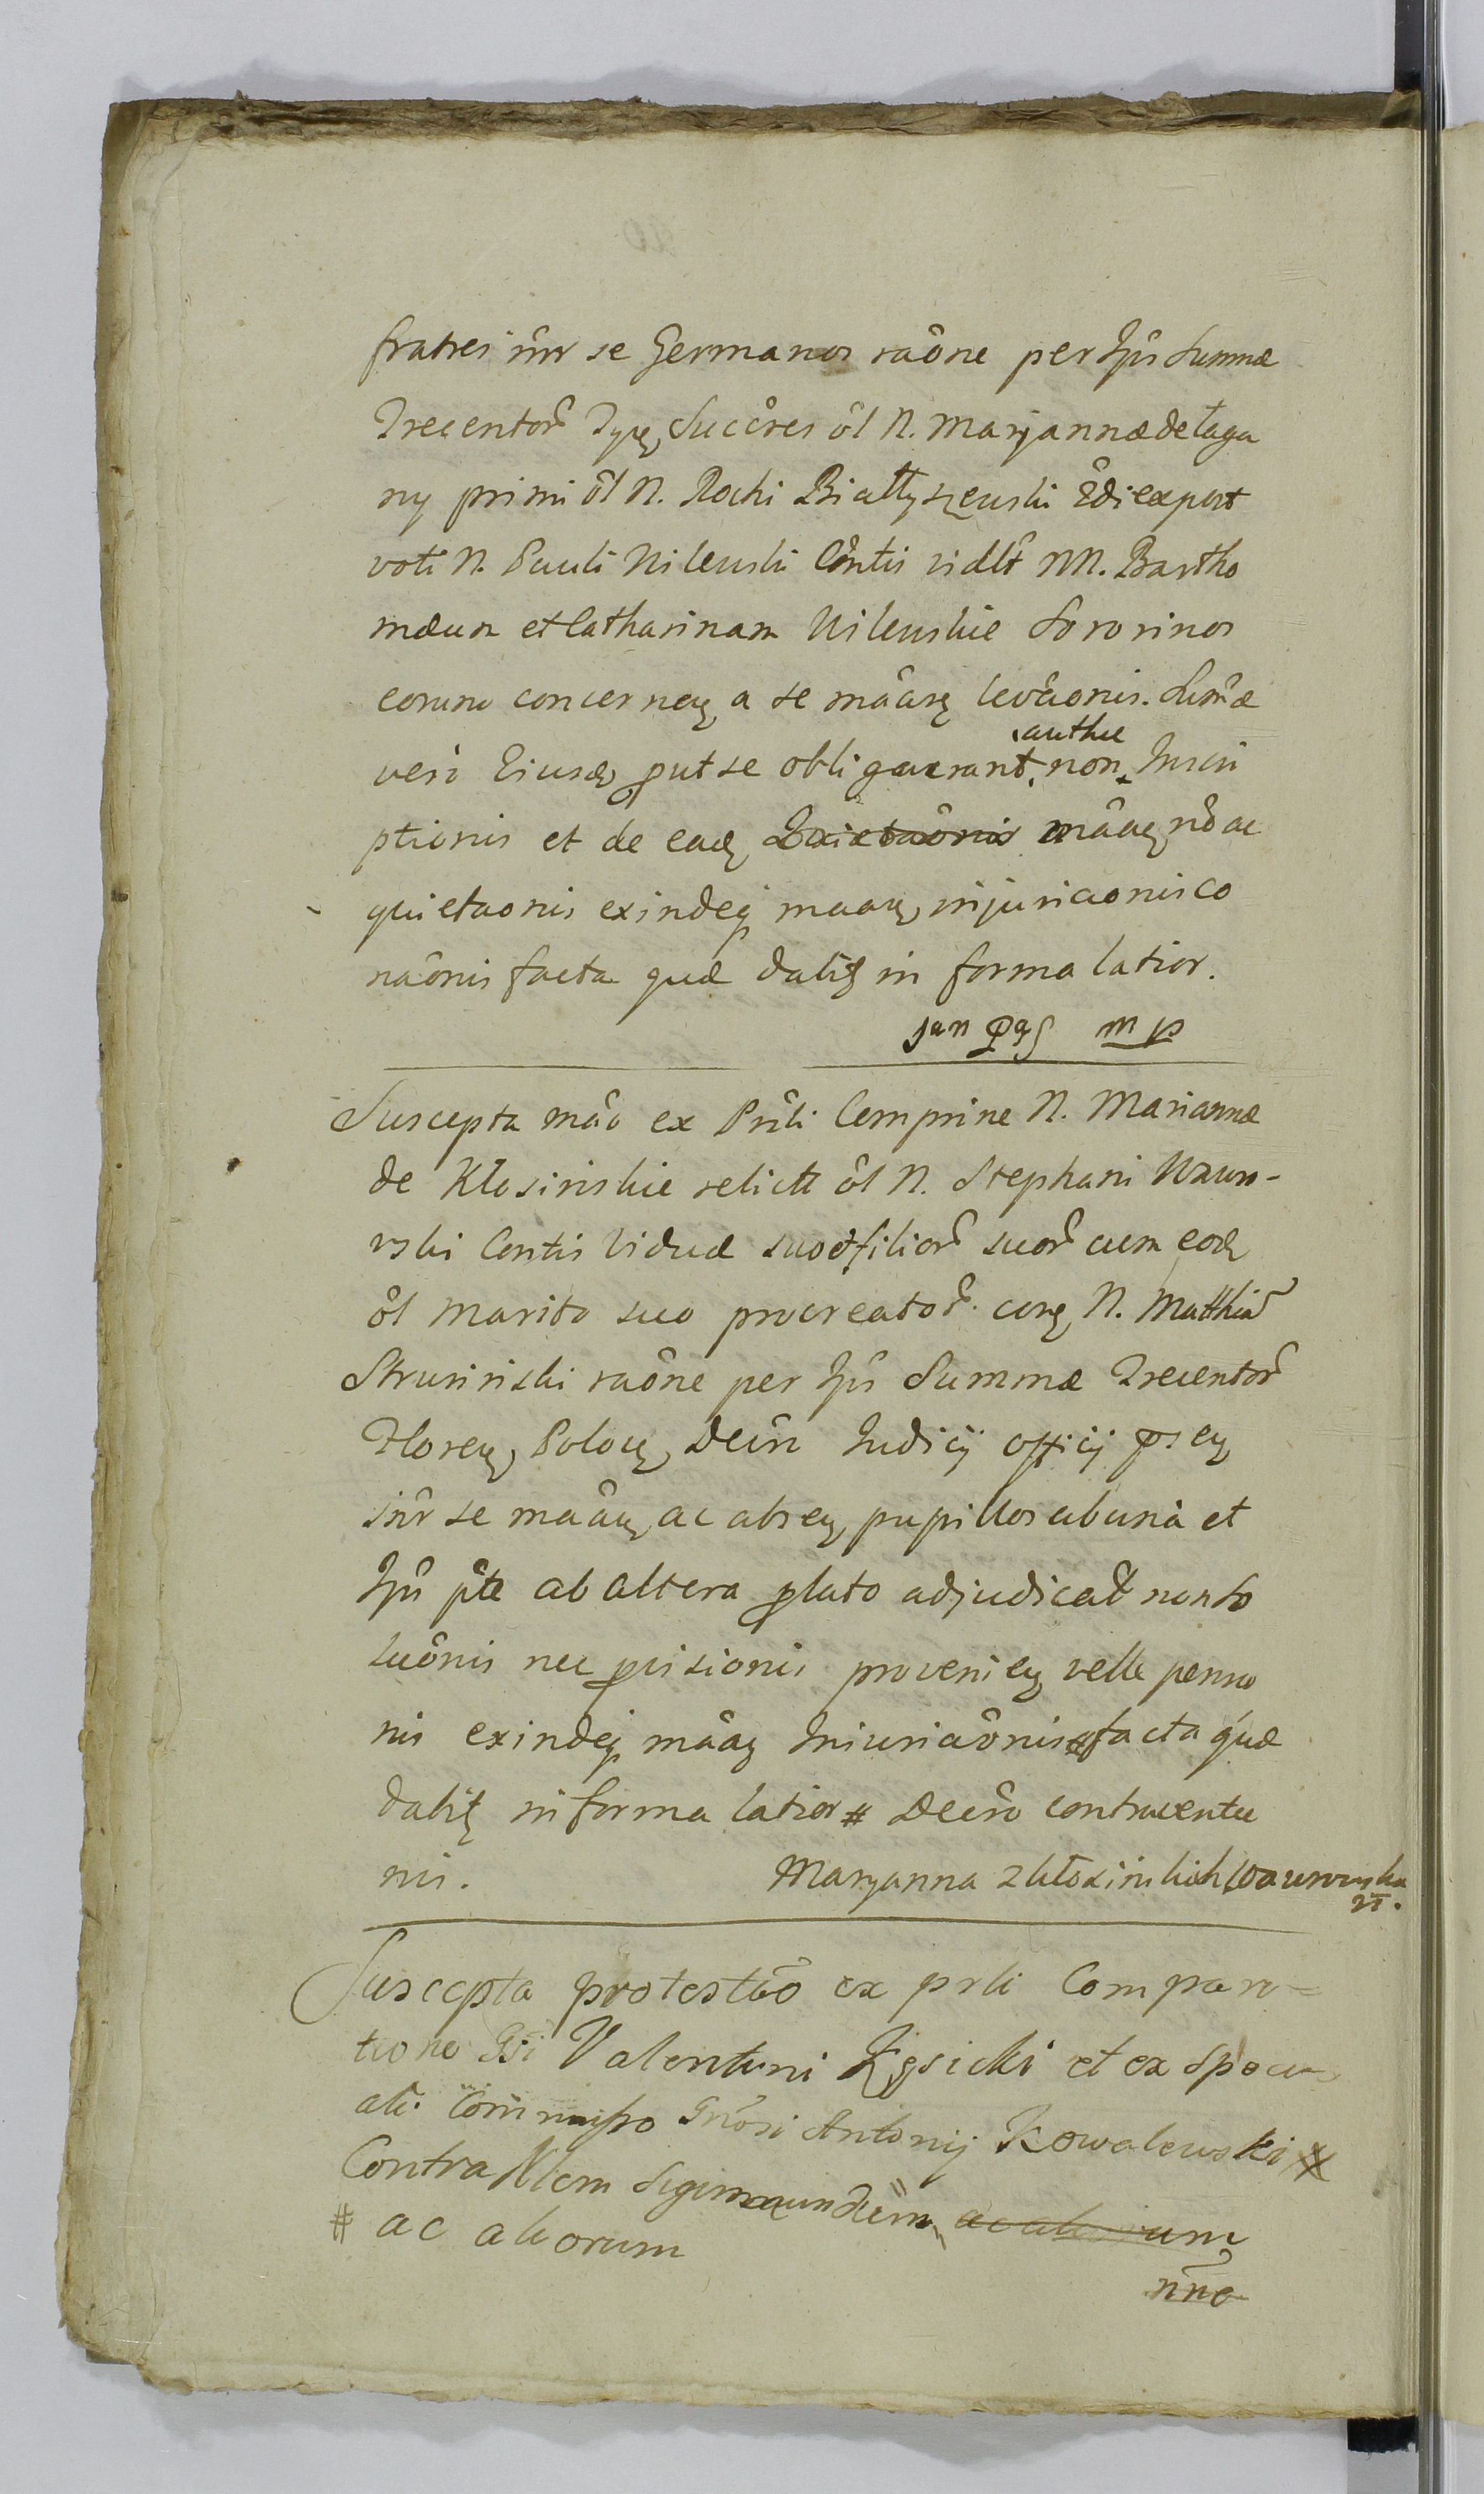 fratres inr se Germanos raône per Ipŝ Summæ
Trecentor̂ Typ, Succŝres ôl N. Maryannæ de łaga
ny primi ôl N. Rochi Białłyszewski Edi ex post
voti N. Pauli Wilewski Coñtis vidlt NN. Bartho
mæum et Catharinam Wilewskie Sororinos
eorum concerneñ a se mâarę levâonis. Sum̂æ
vero Eiusdę put se obligaverant, non, Inscri
authæ
ptionis et de eadę mâaę nô ac
quietaonis exindeq maaę, injuriaonis co
nâonis facta quæ dabit in forma latior.
mp
Suscepta mâo ex Prîli Comprine N. Mariannæ
de Kłosinskie relictæ ôl N. Stephani Wawro-
wski Contis Viduæ suo et filior̂ suor̂ cum eodę
ôl marito suo procreator̂. conę N. Matthiam̂
Strusinski raône per Ipŝ Summæ Trecentor̂
Floreę Poloę Decrô Judicij officij pseę
inr̂ se mâaę ac abseę pupillos ab una et
Ipŝ pte ab altera plato adjudicat̂ non so
luônis nec provenieę velle
nis exindeq mâaę Iniuriaônis facta quæ
dabit in forma latior # Decrô contraventu
nis. Maryanna z kłosinskich Wawrowska
Suscepta protestâo ex prli Compara=
tione Gsi Valentini et ex Speci
ali Commisso Gnôsi Antonij Kowalewski #
Contra Nlem Sigismundum
# ac aliorum
nne